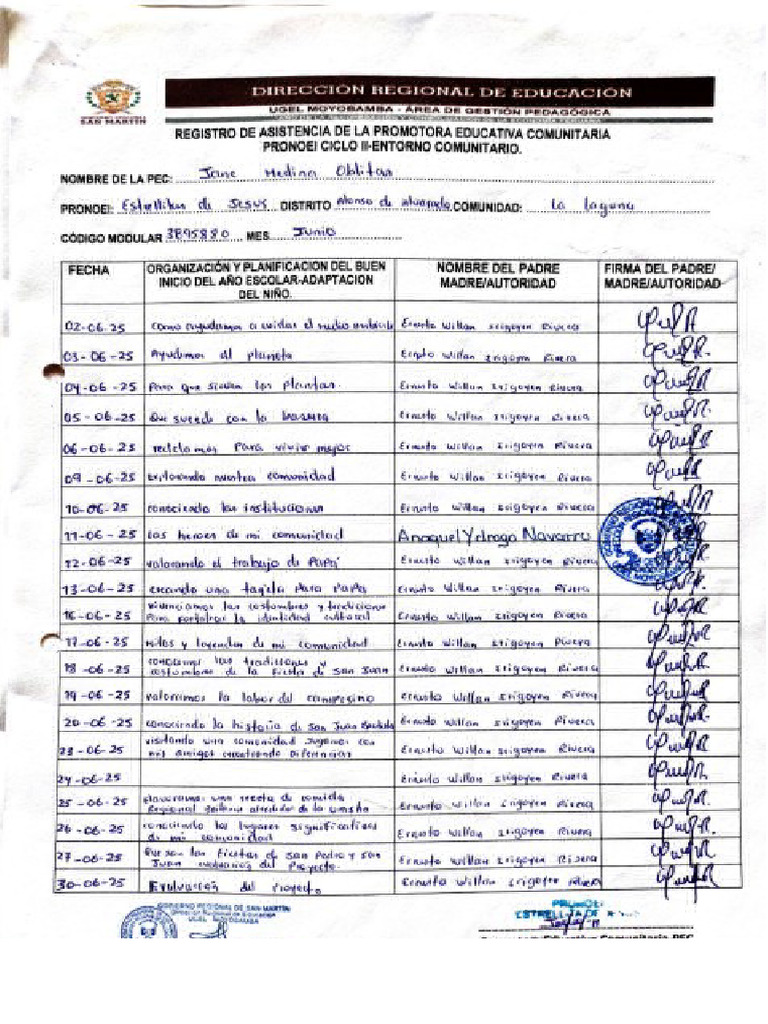 SAN MARTIN
DIRECCIÓN REGIONAL DE EDUCACIÓN
UGEL MOYOBAMBA - ÁREA DE GESTIÓN PEDAGÓGICA
REGISTRO DE ASISTENCIA DE LA PROMOTORA EDUCATIVA COMUNITARIA
PRONOEI CICLO II-ENTORNO COMUNITARIO.
NOMBRE DE LA PEC: Jane Medina Oblitas
PRONOEI: Estrellitas de Jesus DISTRITO Alonso de alvarado COMUNIDAD: La Laguna
CÓDIGO MODULAR 3895880 MES Junio
FECHA ORGANIZACIÓN Y PLANIFICACION DEL BUEN INICIO DEL AÑO ESCOLAR-ADAPTACION DEL NIÑO. NOMBRE DEL PADRE MADRE/AUTORIDAD FIRMA DEL PADRE/ MADRE/AUTORIDAD
02-06-25 como ayudamos a cuidar el medio ambiente Ernesto Willan Irigoyen Rivera
03-06-25 Ayudemos al planeta Ernesto Willan Irigoyen Rivera
04-06-25 Para que sirven las plantas. Ernesto Willan Irigoyen Rivera
05-06-25 Que sucede con la basura Ernesto Willan Irigoyen Rivera
06-06-25 para vivir mejor Ernesto Willan Irigoyen Rivera
09-06-25 explorando nuestra comunidad Ernesto Willan Irigoyen Rivera
10-06-25 conociendo las instituciones Ernesto Willan Irigoyen Rivera
11-06-25 Los heroes de mi comunidad Navarro
12-06-25 valorando el trabajo de Papá Ernesto Willan Irigoyen Rivera
13-06-25 creando una tarjeta para Papá Ernesto Willan Irigoyen Rivera
16-06-25 vivenciamos las costumbres y tradiciones
Para fortalecer la identidad cultural Ernesto Willan Irigoyen Rivera
17-06-25 mitos y leyendas de mi comunidad Ernesto Willan Irigoyen Rivera
18-06-25 conocemos las tradiciones y
costumbres de la fiesta de San Juan Ernesto Willan Irigoyen Rivera
19-06-25 valoramos la labor del campesino Ernesto Willan Irigoyen Rivera
20-06-25 conociendo la historia de San Juan Bautista Ernesto Willan Irigoyen Rivera
23-06-25 visitando una comunidad jugamos con
mis amigos Ernesto Willan Irigoyen Rivera
24-06-25 Ernesto Willan Irigoyen Rivera
25-06-25 elaboramos una receta de comida
Regional alrededor de la umsha Ernesto Willan Irigoyen Rivera
26-06-25 conociendo los lugares significativos
de mi comunidad Ernesto Willan Irigoyen Rivera
27-06-25 Que son las fiestas de San Pedro y San
Juan evaluación del Proyecto. Ernesto Willan Irigoyen Rivera
30-06-25 Evaluación del Proyecto Ernesto Willan Irigoyen Rivera
GOBIERNO REGIONAL DE SAN MARTIN
Dirección Regional de Educación
UGEL MOYOBAMBA
PRONOEI
Educativa Comunitaria PEC